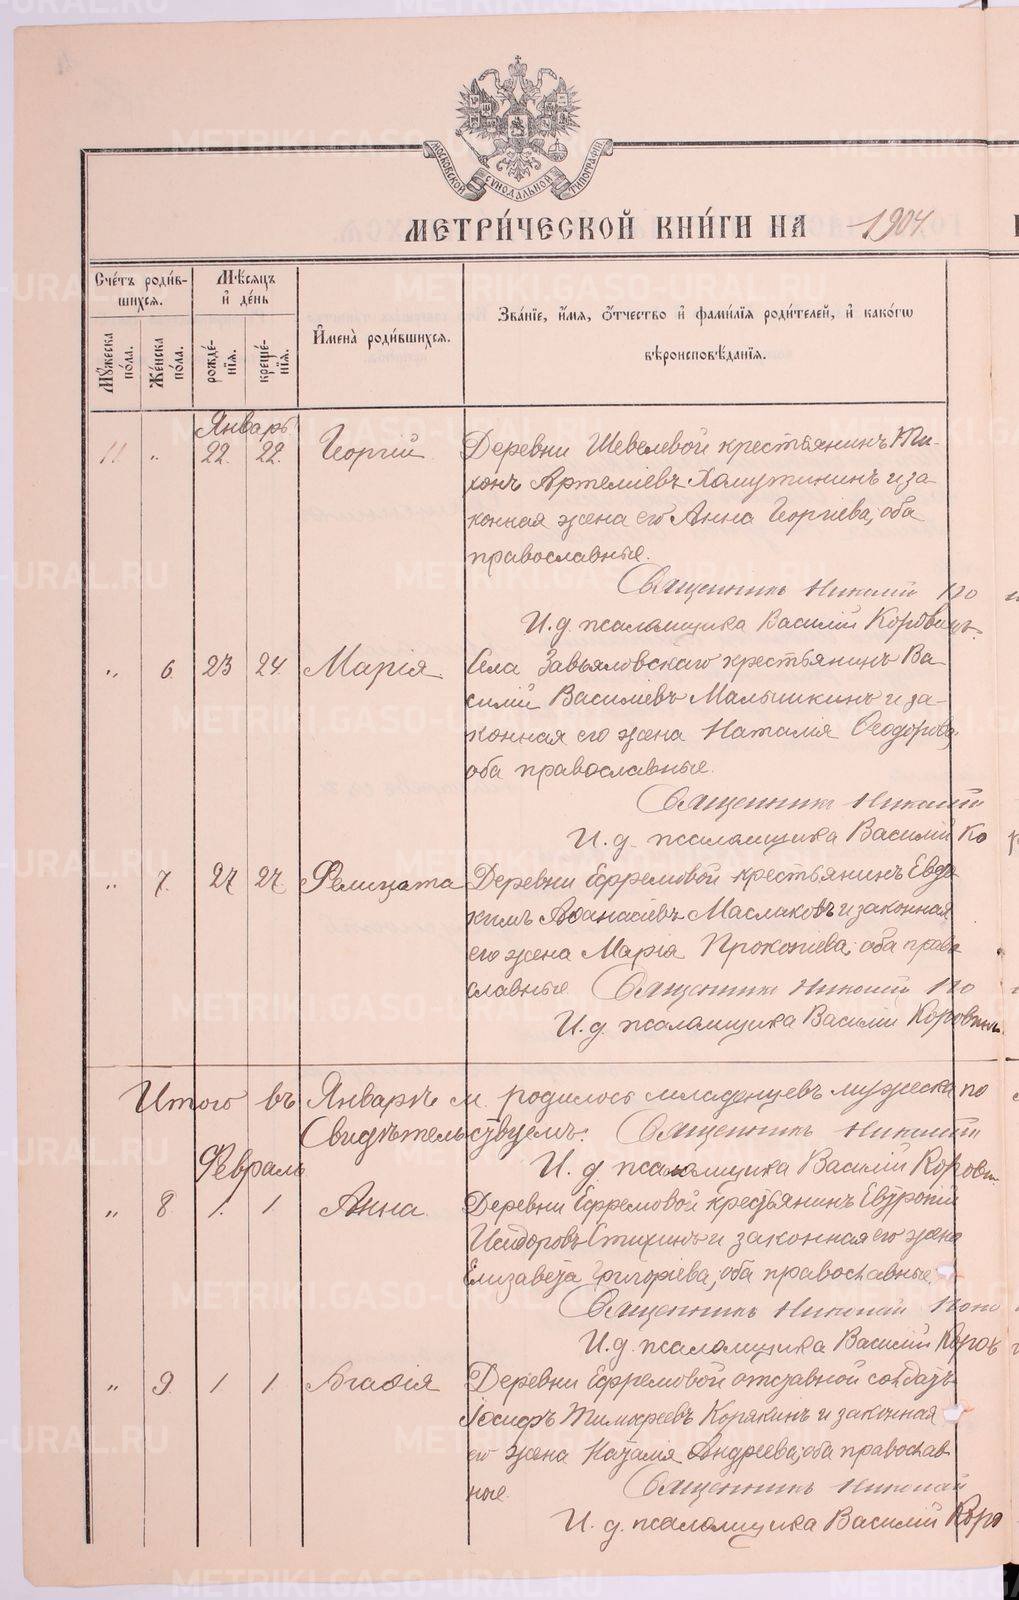 МОСКОВСКОЙ СѴНОДАЛЬНОЙ ТИПОГРАФІИ
МЕТРИ́ЧЕСКОЙ КНИ́ГИ НА 1904.
Сче́тъ роди́в-
шихсѧ.
Мѣ́сѧцъ
и҆ де́нь
Мꙋ́жеска
по́ла.
Же́нска
по́ла.
рожде́-
нїѧ.
креще́-
нїѧ.
И҆мена̀ роди́вшихсѧ.
Зва́нїе, и҆́мѧ, ѻ҆́тчество и҆ фами́лїѧ роди́телей, и҆ како́гѡ
вѣроисповѣ́данїѧ.
Январь
11. „ 22. 22. Георгій Деревни Шевелевой крестьянинъ Ти-
хонъ Артеміевъ Хомутининъ и за-
конная жена его Анна Георгіева, оба
православные.
Священникъ Николай По
И. д. псаломщика Василій Коровинъ.
„ 6. 23 24. Марія. Села Завьяловскаго крестьянинъ Ва-
силій Василіевъ Малышкинъ и за-
конная его жена Наталія Ѳеодорова,
оба православные.
Священникъ Николай
И. д. псаломщика Василій Ко
„ 7. 27 27. Фелицата Деревни Ефремовой крестьянинъ Евдо
кимъ Аѳанасіевъ Маслаковъ и законная
его жена Марія Прокопіева, оба право
славные. Священникъ Николай По
И. д. псаломщика Василій Коровинъ.
Итого въ Январѣ м. родилось младенцевъ мужеска по
Свидѣтельствуемъ: Священникъ Николай
Февраль
И. д. псаломщика Василій Корови
„ 8. 1. 1 Анна. Деревни Ефремовой крестьянинъ Евтропій
Исидоровъ Стихинъ и законная его жена
Елизавета Григоріева, оба православные.
Священникъ Николай Поно
И. д. псаломщика Василій Коров
„ 9. 1 1. Агаѳія Деревни Ефремовой отставной солдатъ
Іосифъ Тимоѳеевъ Корякинъ и законная
его жена Наталія Андреева, оба православ
ные. Священникъ Николай
И. д. псаломщика Василій Коро
METRIKI.GASO-URAL.RU